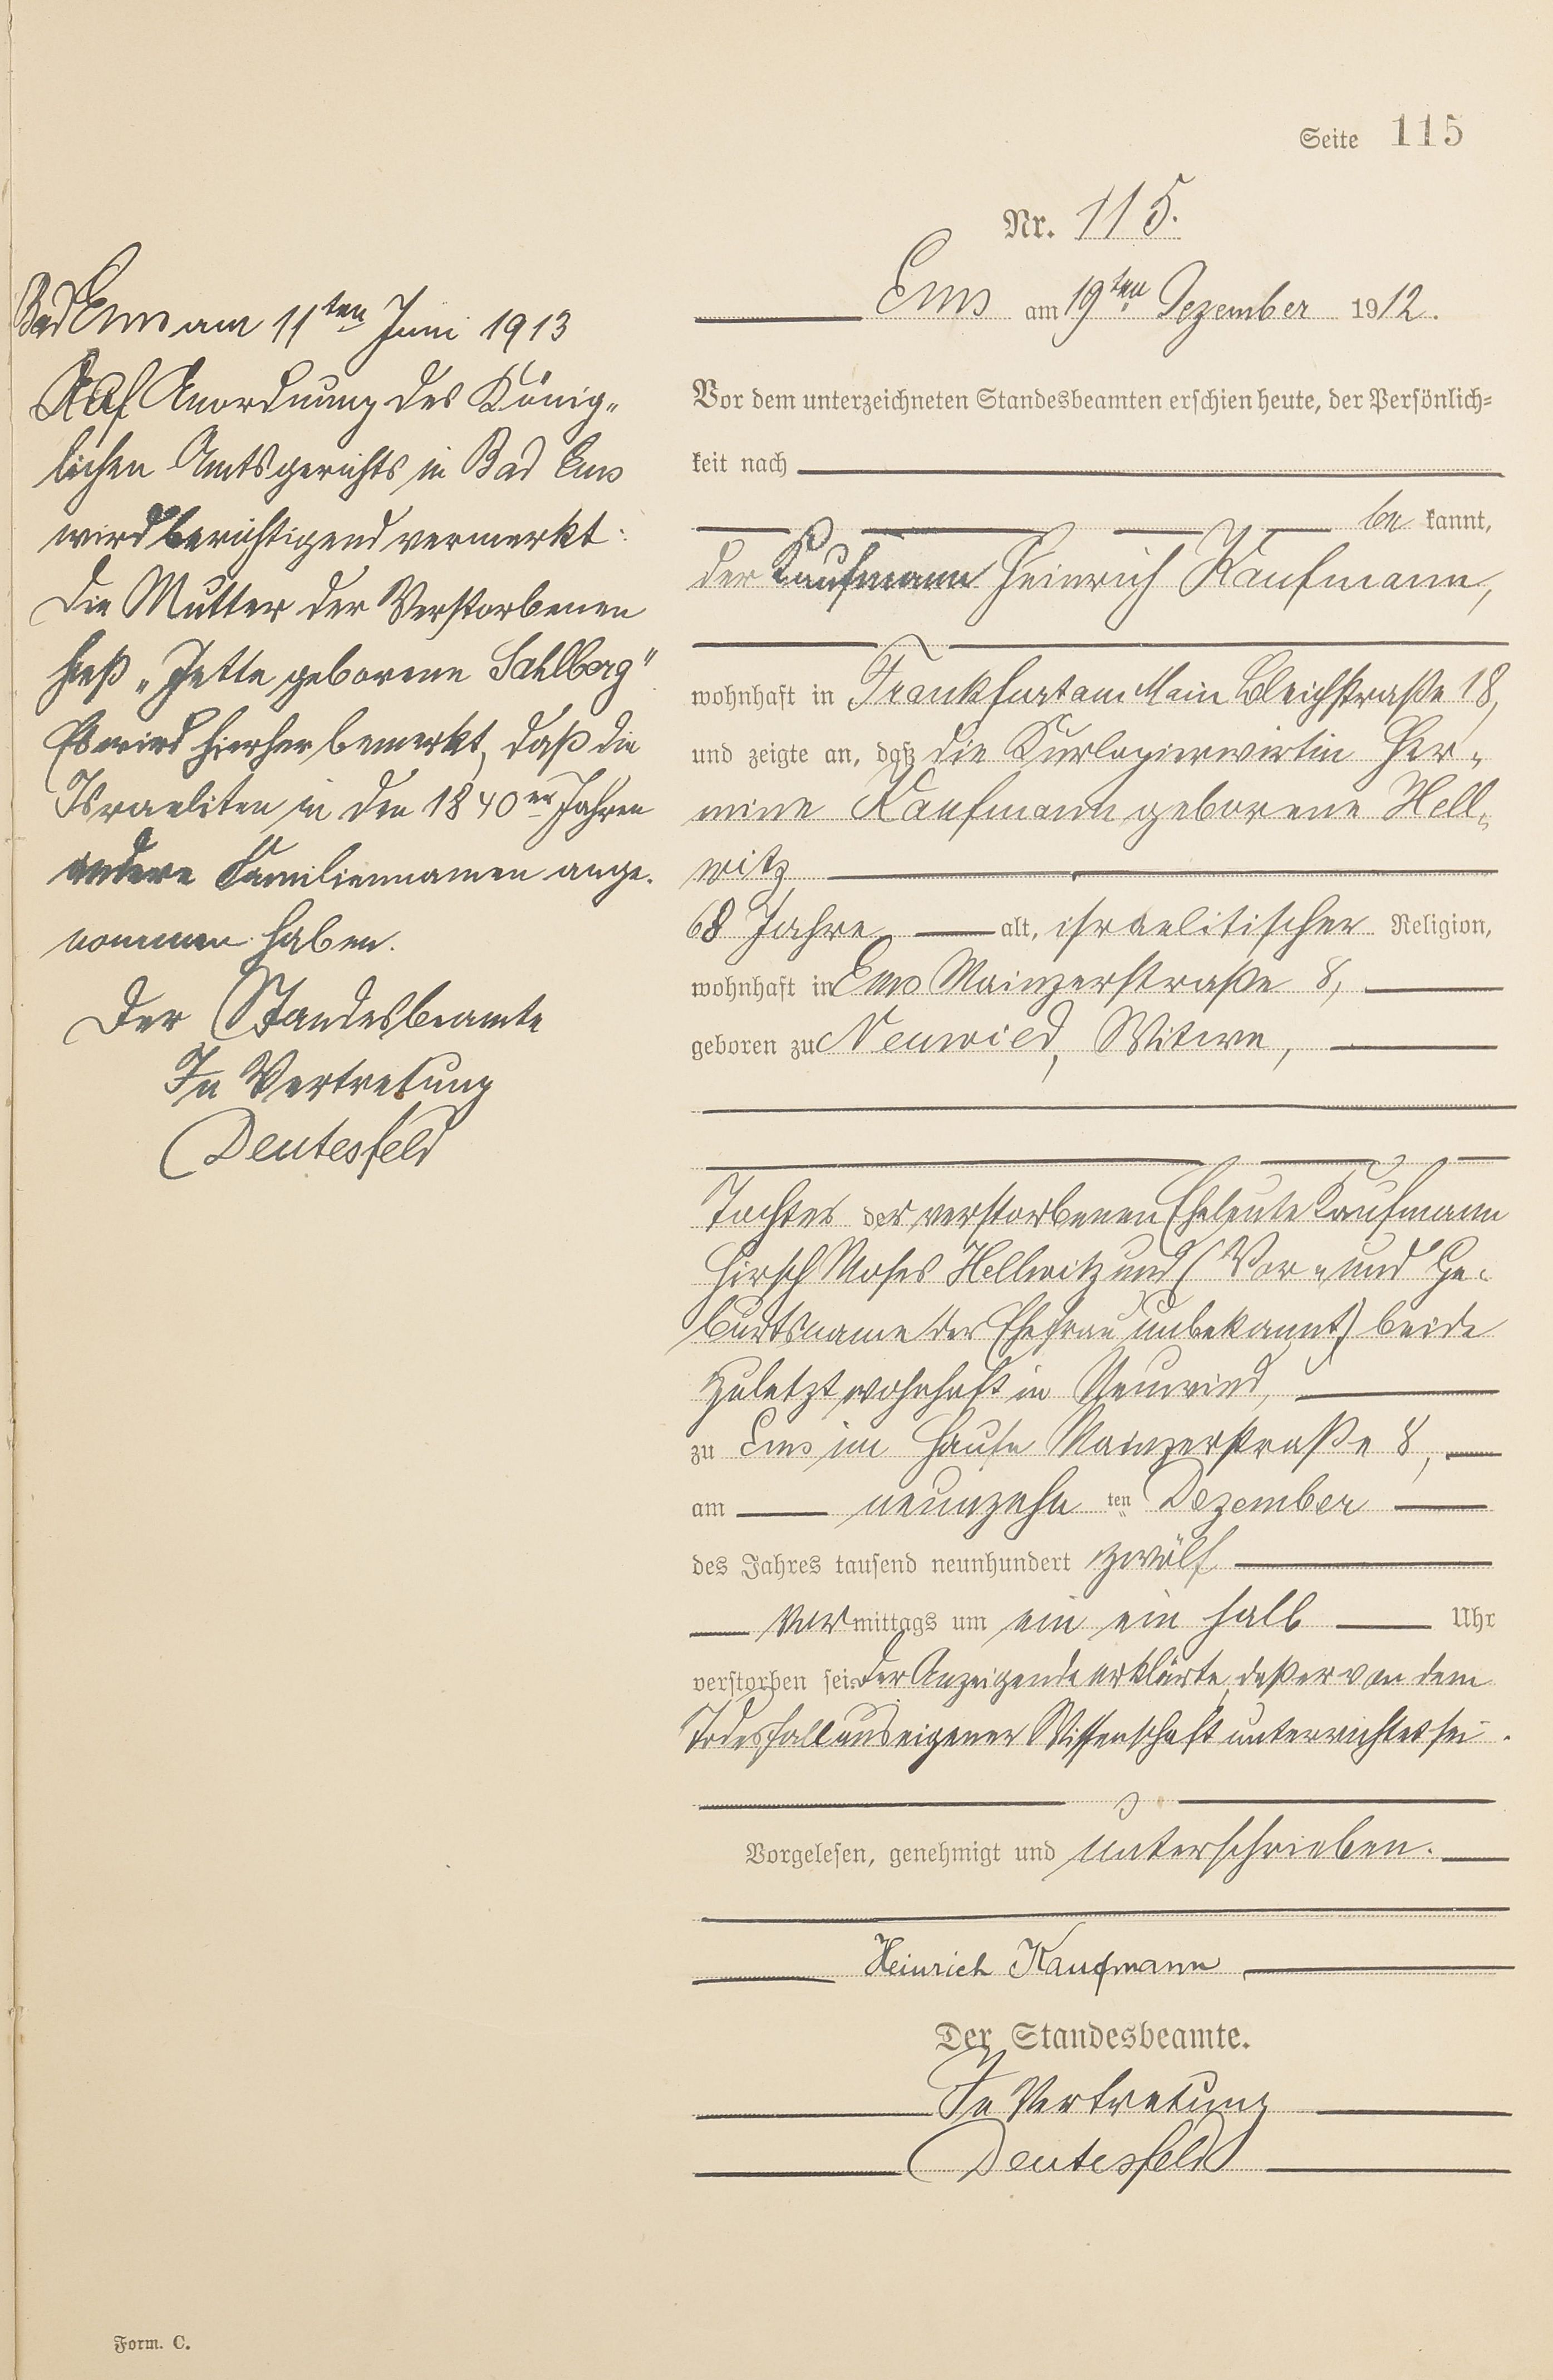 Seite 115
Nr. 115.
Ems am 19ten Dezember 1912.
Vor dem unterzeichneten Standesbeamten erschien heute, der Persönlich-
keit nach
be kannt,
der Kaufmann Heinrich Kaufmann,
wohnhaft in Frankfurt am Main Bleichstraße 18,
und zeigte an, daß die Kurlogierwirtin Her-
mine Kaufmann geborene Hell-
witz
68 Jahre alt, israelitischer Religion,
wohnhaft in Ems Mainzerstraße 8,
geboren zu Neuwied, Witwe,
Tochter der verstorbenen Eheleute Kaufmann
Hirsch Moses Hellwitz und (Vor- und Ge-
burtsname der Ehefrau unbekannt) beide
zuletzt wohnhaft in Neuwied,
zu Ems im Hause Mainzerstraße 8,
am neunzehn ten Dezember
des Jahres tausend neunhundert zwölf
Vor mittags um ein ein halb Uhr
verstorben sei. Der Anzeigende erklärte, daß er von dem
Todesfall aus eigener Wissenschaft unterrichtet sei.
Vorgelesen, genehmigt und unterschrieben.
Heinrich Kaufmann
Der Standesbeamte.
In Vertretung
Deutesfeld
Bad Ems am 11ten Juni 1913
Auf Anordnung des König-
lichen Amtsgerichts in Bad Ems
wird berichtigend vermerkt:
Die Mutter der Verstorbenen
hieß „Jette geborene Sahlberg"
Es wird hierher bemerkt, daß die
Israeliten in den 1840er Jahren
andere Familiennamen ange-
nommen haben.
Der Standesbeamte
In Vertretung
Deutesfeld
Form. C.